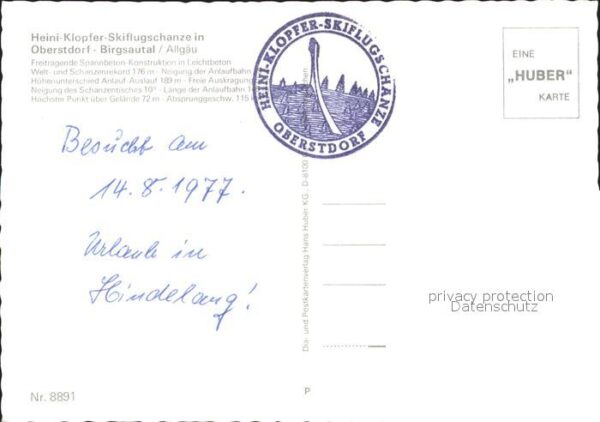 Heini-Klopfer-Skiflugschanze in
Oberstdorf - Birgsautal / Allgäu
Freitragende Spannbeton-Konstruktion in Leichtbeton
Welt- und Schanzenrekord 176 m - Neigung der Anlaufbahn
Höhenunterschied Anlauf-Auslauf 189 m - Freie Auskragung
Neigung des Schanzentisches 10° - Länge der Anlaufbahn
Höchster Punkt über Gelände 72 m - Absprunggeschw. 115
HEINI-KLOPFER-SKIFLUGSCHANZE
OBERSTDORF
EINE
„HUBER"
KARTE
Besucht am
14.8.1977.
Urlaub in
Hindelang!
Dia- und Postkartenverlag Hans Huber KG., D-8100
privacy protection
Datenschutz
Nr. 8891
p